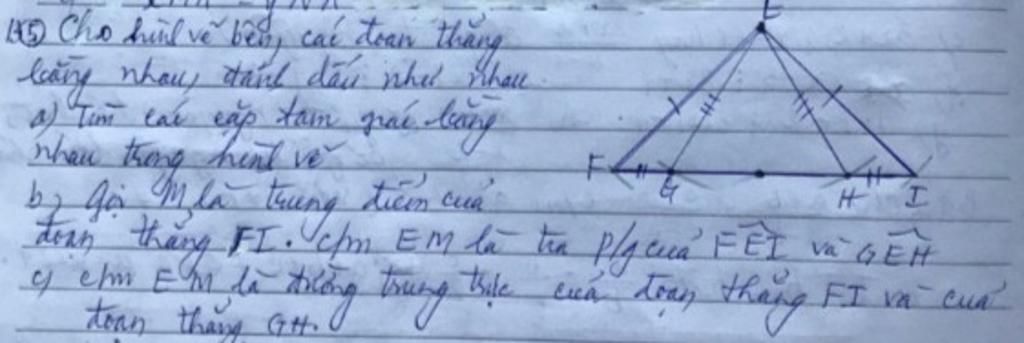 Bài 5 Cho hình vẽ bên, các đoạn thẳng
bằng nhau, đánh dấu như nhau
a) Tìm các cặp tam giác bằng
nhau trong hình vẽ
b, Gọi M là trung điểm của
đoạn thẳng FI. c/m EM là tia p/g của FEI và GEH
c) c/m EM là đường trung trực của đoạn thẳng FI và của
đoạn thẳng GH.
E
F
G
H
I